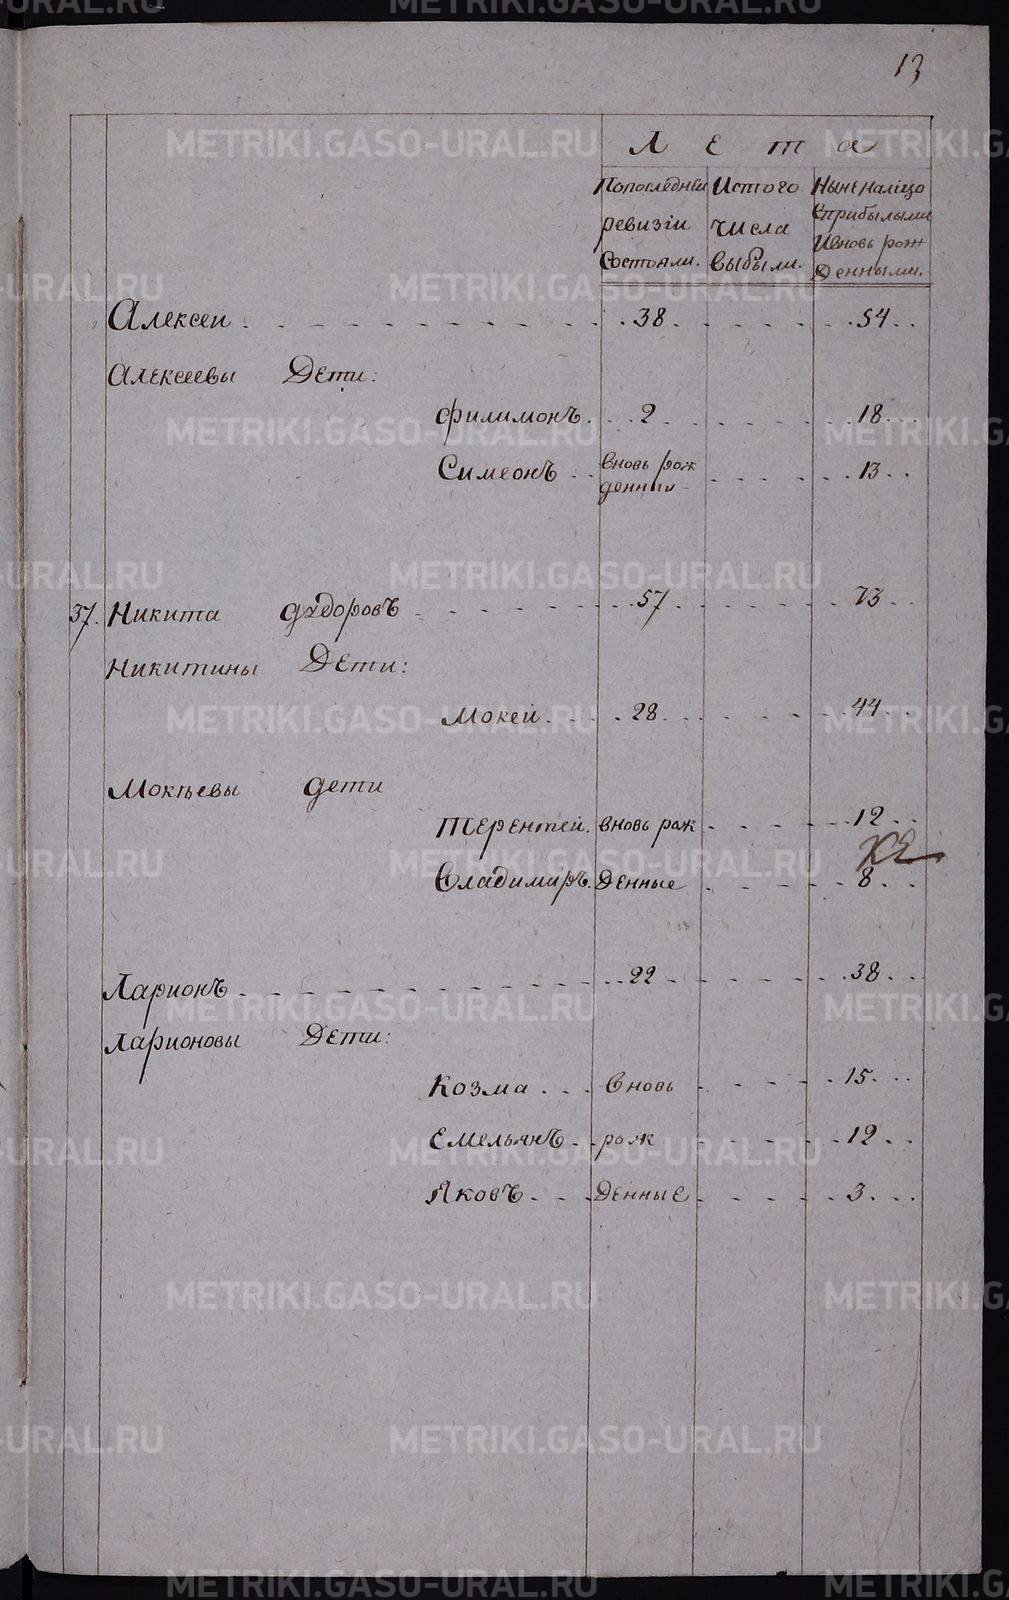 13
Лета
Попоследней ревизiи состояли.
Истого числа выбыли.
Ныне налицо сприбылыми ивновь рожденными.
Алексеи 38. 54.
Алексеевы Дети:
Филимонъ. 2 18
Симеонъ вновь рожденныи 13
37. Никита Ф҃доровъ 57 73
Никитины Дети:
Мокей 28 44
Мокѣевы дети
Терентей. вновь рож 12
Владимиръ. Денные 8
Ларионъ 22 38
Ларионовы Дети:
Козма Вновь 15
Емельянъ рож 12
Яковъ Денные 3
METRIKI.GASO-URAL.RU